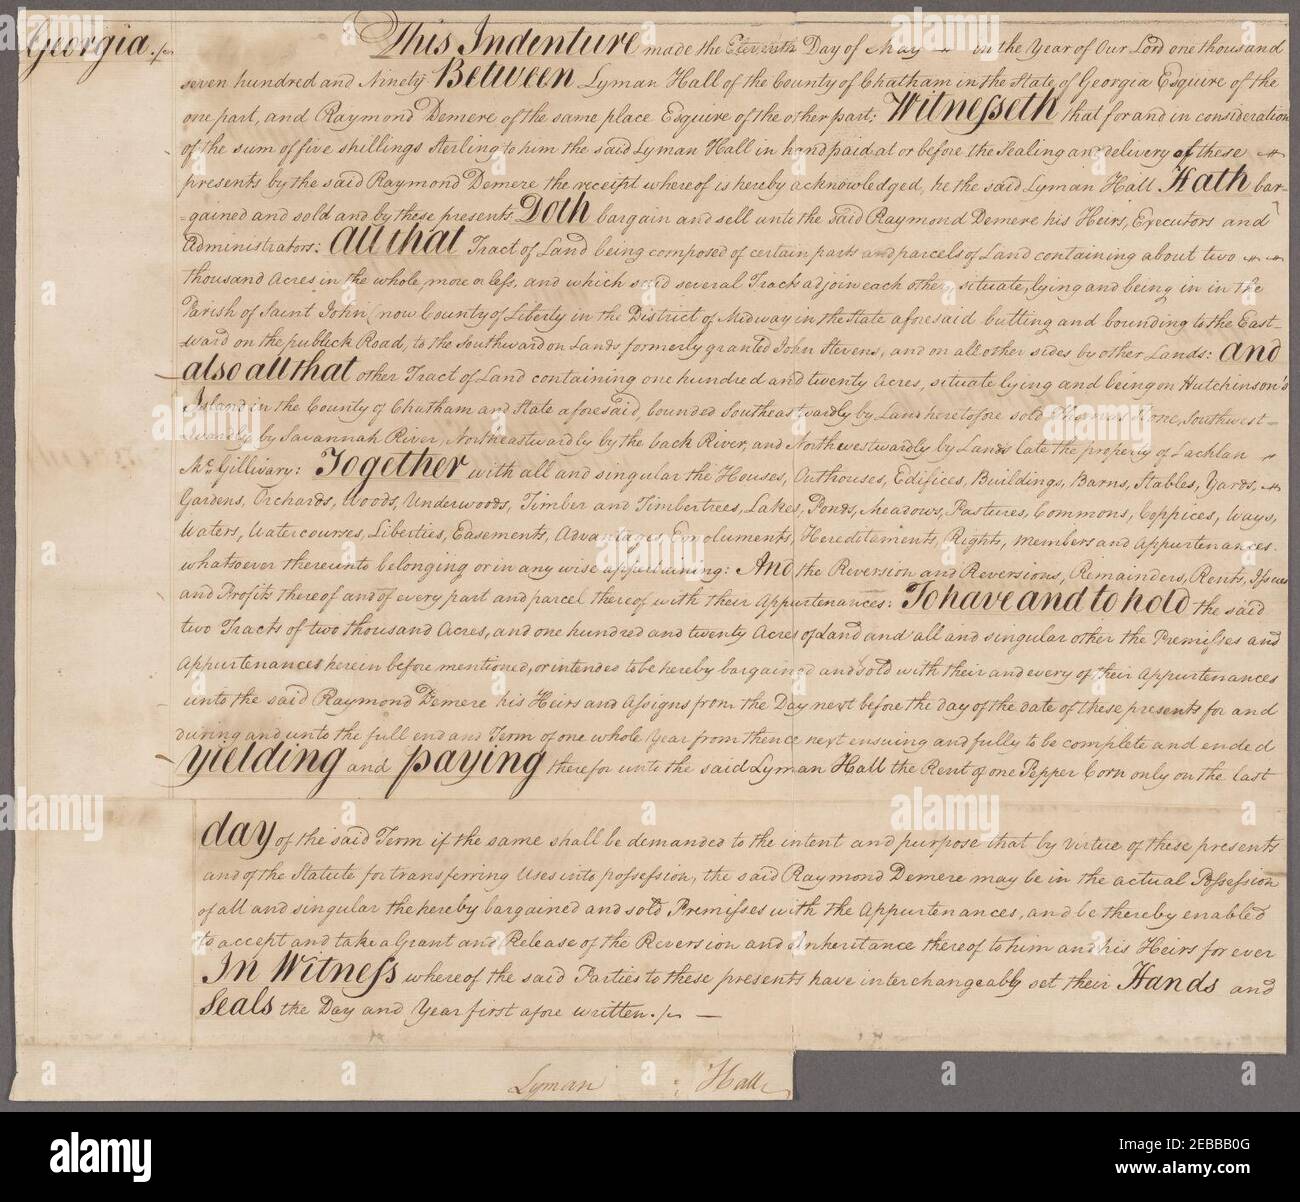 Georgia
This Indenture made the Eleventh Day of May in the Year of Our Lord one thousand
seven hundred and Ninety Between Lyman Hall of the County of Chatham in the State of Georgia Esquire of the
one part, and Raymond Demere of the same place Esquire of the other part; Witnesseth that for and in consideration
of the sum of five shillings sterling to him the said Lyman Hall in hand paid at or before the Sealing and delivery of these
presents by the said Raymond Demere the receipt whereof is hereby acknowledged, he the said Lyman Hall Hath bar-
-gained and sold and by these presents Doth bargain and sell unto the said Raymond Demere his Heirs, Executors and
Administrators: All that Tract of Land being composed of certain parts and parcels of Land containing about two
thousand Acres, in the whole, more or less, and which said several Tracts adjoin each other, situate, lying and being in in the
Parish of Saint John (now County of Liberty in the District of Midway in the State aforesaid butting and bounding to the East-
-ward on the publick Road, to the Southward on Lands formerly granted John Stevens, and on all other sides by other Lands: And
also all that other Tract of Land containing one hundred and twenty Acres, situate lying and being on Hutchinson's
Island in the County of Chatham and State aforesaid, bounded Southeastwardly by Land heretofore sold Thomas Stone, Southwest-
-wardly by Savannah River, Northeastwardly by the back River, and Northwestwardly by Lands late the property of Lachlan
McGillivary: Together with all and singular the Houses, Outhouses, Edifices, Buildings, Barns, Stables, Yards,
Gardens, Orchards, Woods, Underwoods, Timber and Timbertrees, Lakes, Ponds, Meadows, Pastures, Commons, Coppices, Ways,
Waters, Watercourses, Liberties, Easements, Advantages, Emoluments, Hereditaments, Rights, Members and Appurtenances
whatsoever thereunto belonging or in any wise appertaining: And the Reversion and Reversions, Remainders, Rents, Issues
and Profits thereof and of every part and parcel thereof with their Appurtenances: To have and to hold the said
two Tracts of two thousand Acres, and one hundred and twenty Acres of Land and all and singular other the Premisses and
Appurtenances herein before mentioned, or intended to be hereby bargained and sold with their and every of their Appurtenances
unto the said Raymond Demere his Heirs and Assigns from the Day next before the day of the date of these presents for and
during and unto the full end and Term of one whole Year from thence next ensuing and fully to be complete and ended
yielding and paying therefor unto the said Lyman Hall the Rent of one Pepper Corn only on the last
day of the said Term if the same shall be demanded to the intent and purpose that by virtue of these presents
and of the Statute for transferring Uses into possession, the said Raymond Demere may be in the actual Possession
of all and singular the hereby bargained and sold Premisses with the Appurtenances, and be thereby enabled
to accept and take a Grant and Release of the Reversion and Inheritance thereof to him and his Heirs for ever
In Witness whereof the said Parties to these presents have interchangeably set their Hands and
Seals the Day and Year first afore written.
Lyman Hall
alamy
alamy
Image ID: 2EBBB0G
www.alamy.com